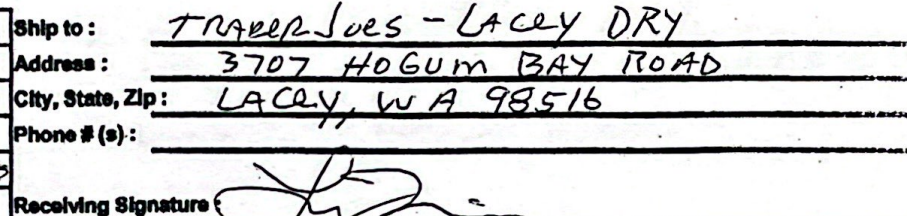 Ship to : TRADER JOES - LACEY DRY
Address : 3707 HOGUM BAY ROAD
City, State, Zip : LACEY, WA 98516
Phone # (s) :
Receiving Signature :